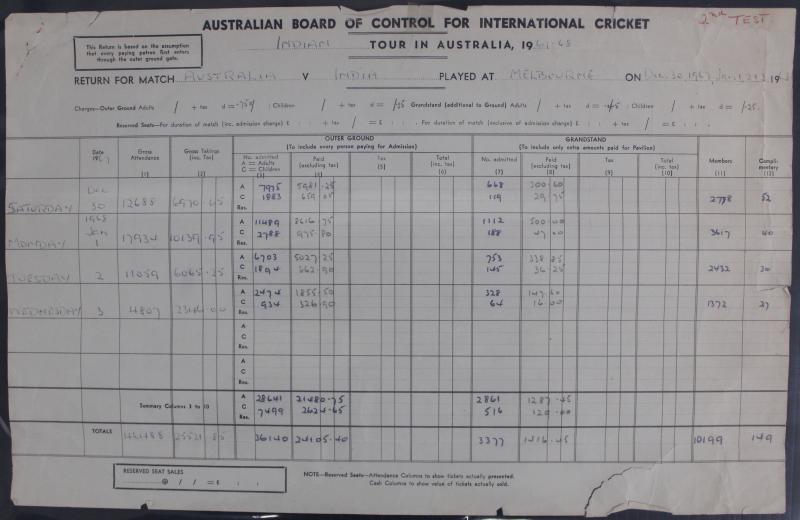 AUSTRALIAN BOARD OF CONTROL FOR INTERNATIONAL CRICKET
2nd TEST
This Return is based on the assumption
that every paying patron first enters
through the outer ground gate.
INDIAN TOUR IN AUSTRALIA, 19
RETURN FOR MATCH AUSTRALIA V INDIA PLAYED AT MELBOURNE ON Dec. 30, 1967, Jan. 1, 2 & 3 19
Charges—Outer Ground Adults / + tax d = .75 ; Children / + tax d = /.35 Grandstand (additional to Ground) Adults / + tax d = .45 ; Children / + tax d = /.25
Reserved Seats—For duration of match (inc. admission change) £ : + tax / = £ : . For duration of match (exclusive of admission change) £ : : + tax / = £ : .
Date 1967 Gross Attendance (1) Gross Takings (inc. Tax) (2) OUTER GROUND (To include every person paying for Admission) GRANDSTAND (To include only extra amounts paid for Pavilion) Members (11) Complimentary (12)
No. admitted A = Adults C = Children (3) Paid (excluding tax) (4) Tax (5) Total (inc. tax) (6) No. admitted (7) Paid (excluding tax) (8) Tax (9) Total (inc. tax) (10)
SATURDAY Dec 30 12688 6970.65 A 7975 5981.25 668 300.60 2778 52
C 1883 659.05 119 29.75
Res.
MONDAY 1968 Jan 1 17934 10139.95 A 11489 8616.75 1112 500.40 3617 40
C 2788 975.80 188 47.00
Res.
TUESDAY 2 11059 6065.25 A 6703 5027.25 753 338.85 2432 30
C 1894 662.90 145 36.25
Res.
WEDNESDAY 3 4807 2346.00 A 2474 1855.50 328 147.60 1372 27
C 934 326.90 64 16.00
Res.
A
C
Res.
A
C
Res.
Summary Columns 3 to 10 A 28641 21480.75 2861 1287.45
C 7499 2624.65 516 129.00
Res.
TOTALS 46488 25521.85 36140 24105.40 3377 1416.45 10199 149
RESERVED SEAT SALES
@ / / = £ : :
NOTE—Reserved Seats—Attendance Columns to show tickets actually presented.
Cash Columns to show value of tickets sold.